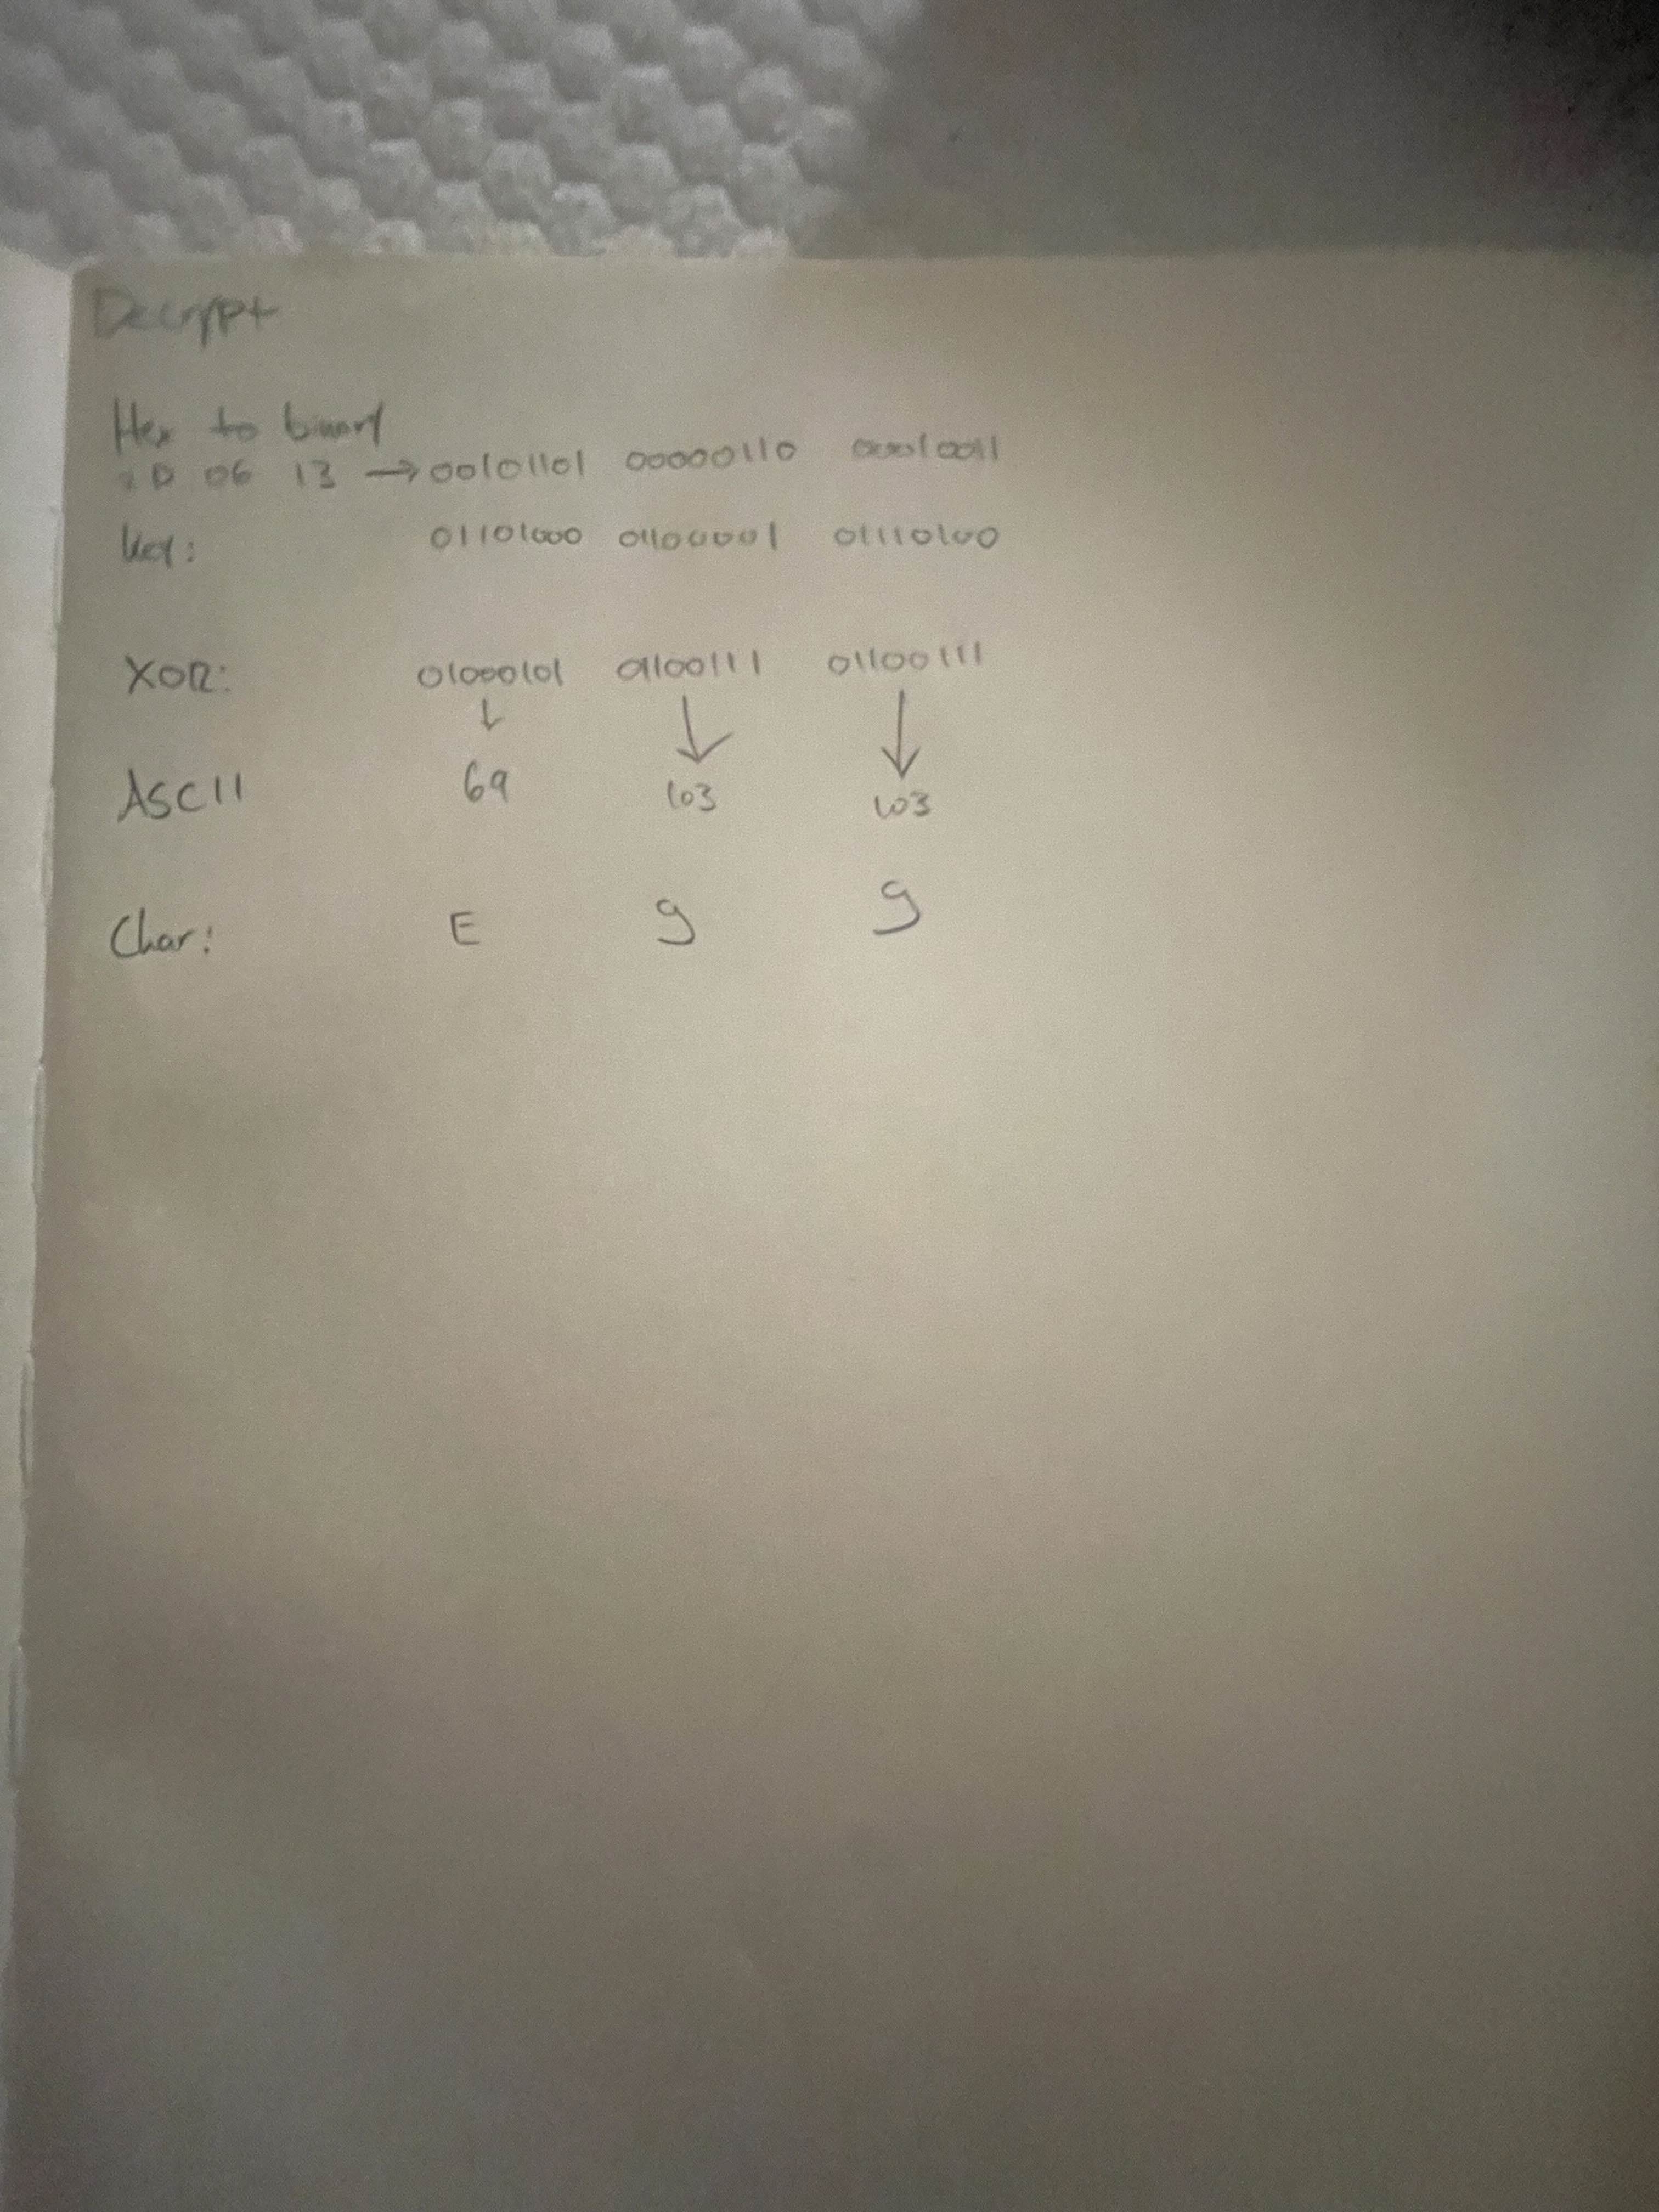 Decrypt
Hex to binary
2D 06 13 → 00101101 00000110 00010011
Key: 01101000 01100001 01110100
XOR: 01000101 01100111 01100111
↓ ↓ ↓
ASCII 69 103 103
Char: E g g